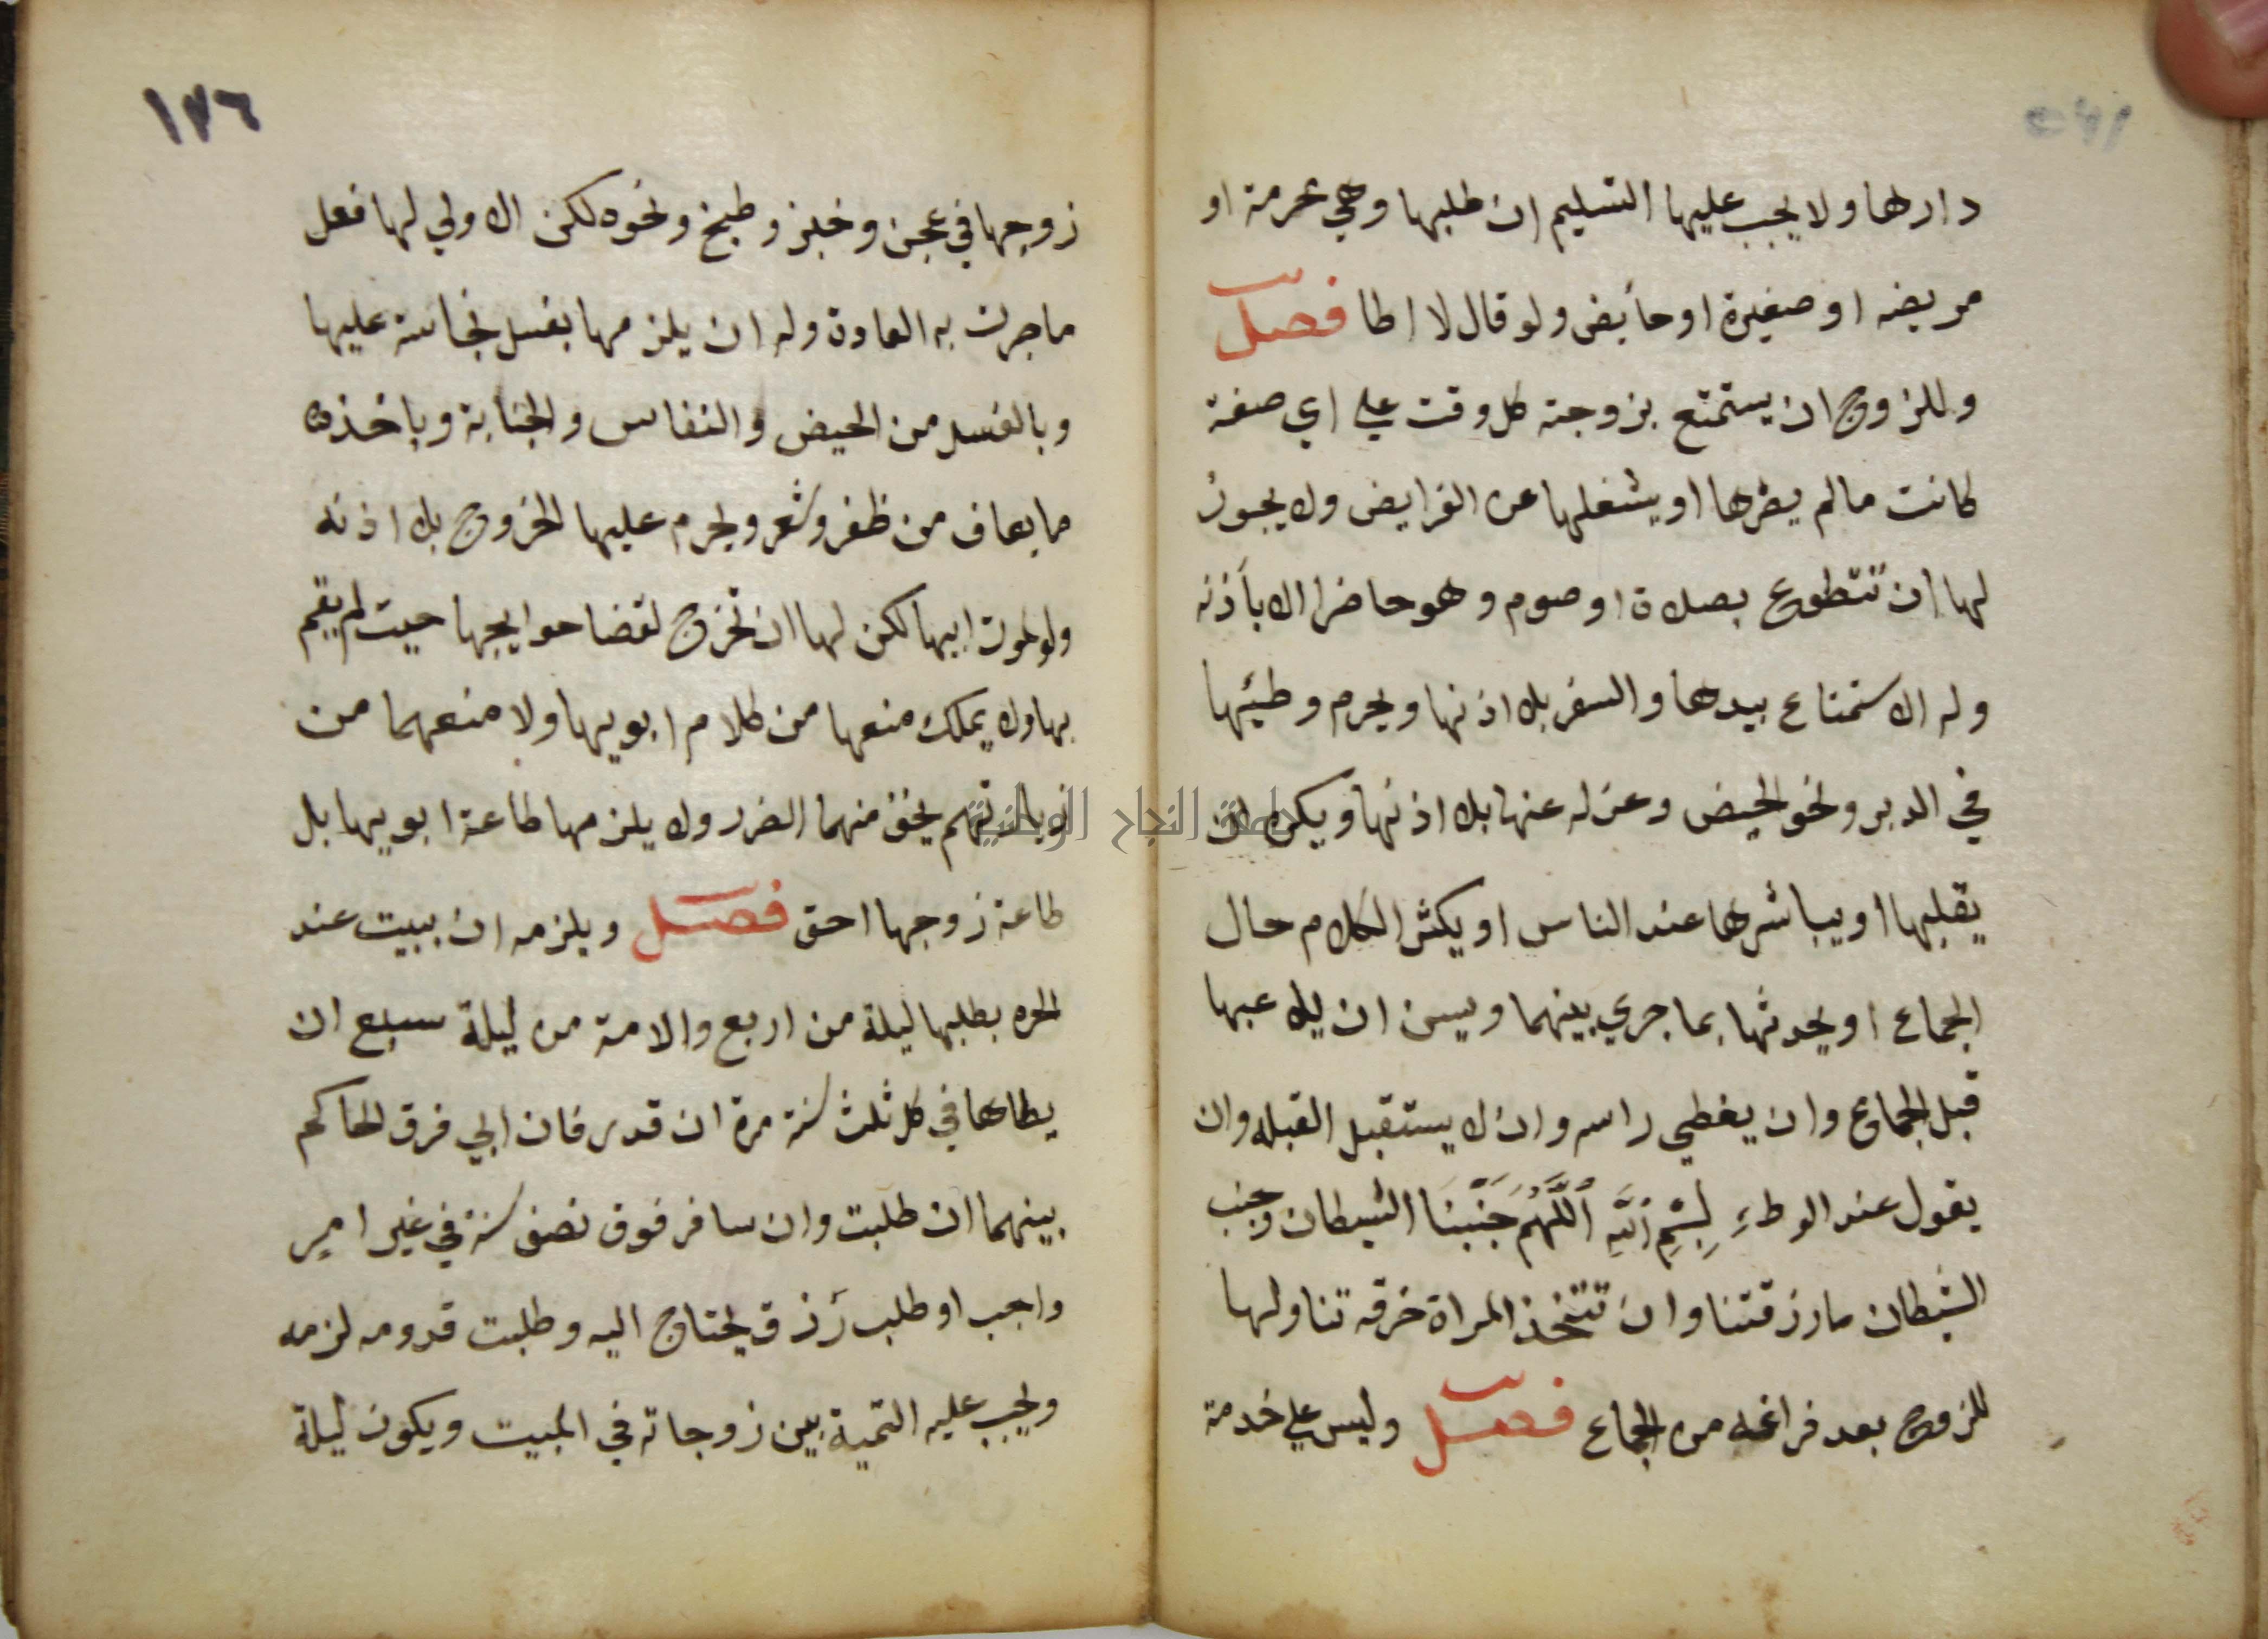 دارها ولا يجب عليها التسليم ان طلبها وهي محرمة او
مريضه او صغيرة او حائض ولو قال لا اطا فصل
وللزوج ان يستمتع بزوجته كل وقت علي اي صفة
كانت ما لم يضرها او يشغلها عن الفرايض ولا يجوز
لها ان تتطوع بصلاة او صوم وهو حاضر الا بأذنه
وله الاستمتاع بيدها والسفر بلا اذنها ويحرم وطيئها
في الدبر ونحو الحيض وعزله عنها بلا اذنها ويكره ان
يقبلها او يباشرها عند الناس او يكثر الكلام حال
الجماع او يحدثها بما جري بينهما ويسن ان يلاعبها
قبل الجماع وان يغطي راسه وان لا يستقبل القبله وان
يقول عند الوطءِ بِسْمِ اللَّهِ اَللَّهُمَّ جَنِّبْنَا الشيطان وجنب
الشيطان ما رزقتنا وان تتخذ المراة خرقه تناولها
للزوج بعد فراغه من الجماع فصل وليس علي خدمة
١٧٦
زوجها في عجن وخبز وطبخ ونحوه لكن الاولي لها فعل
ما جرت به العادة وله ان يلزمها بغسل نجاسة عليها
وبالغسل من الحيض والنفاس والجنابة وباخذه
ما يعاف من ظفر وشعر ويحرم عليها الخروج بلا اذنه
ولو لموت ابيها لكن لها ان تخرج لقضا حوايجها حيث لم يقم
بها ولا يملك منعها من كلام ابويها ولا منعهما من
زيارتهم يخف منهما الضرر ولا يلزمها طاعة ابويها بل
طاعة زوجها احق فصل ويلزمه ان يبيت عند
الحره بطلبها ليلة من اربع والامة من ليلة سبع ان
يطاها في كل ثلث سنة مرة ان قدر فان ابي فرق الحاكم
بينهما ان طلبت وان سافر فوق نصف سنة في غير امر
واجب او طلب رزق يحتاج اليه وطلبت قدومه لزمه
ويجب عليه التمية بين زوجاته في المبيت ويكون ليلة
النجاح الوطنية